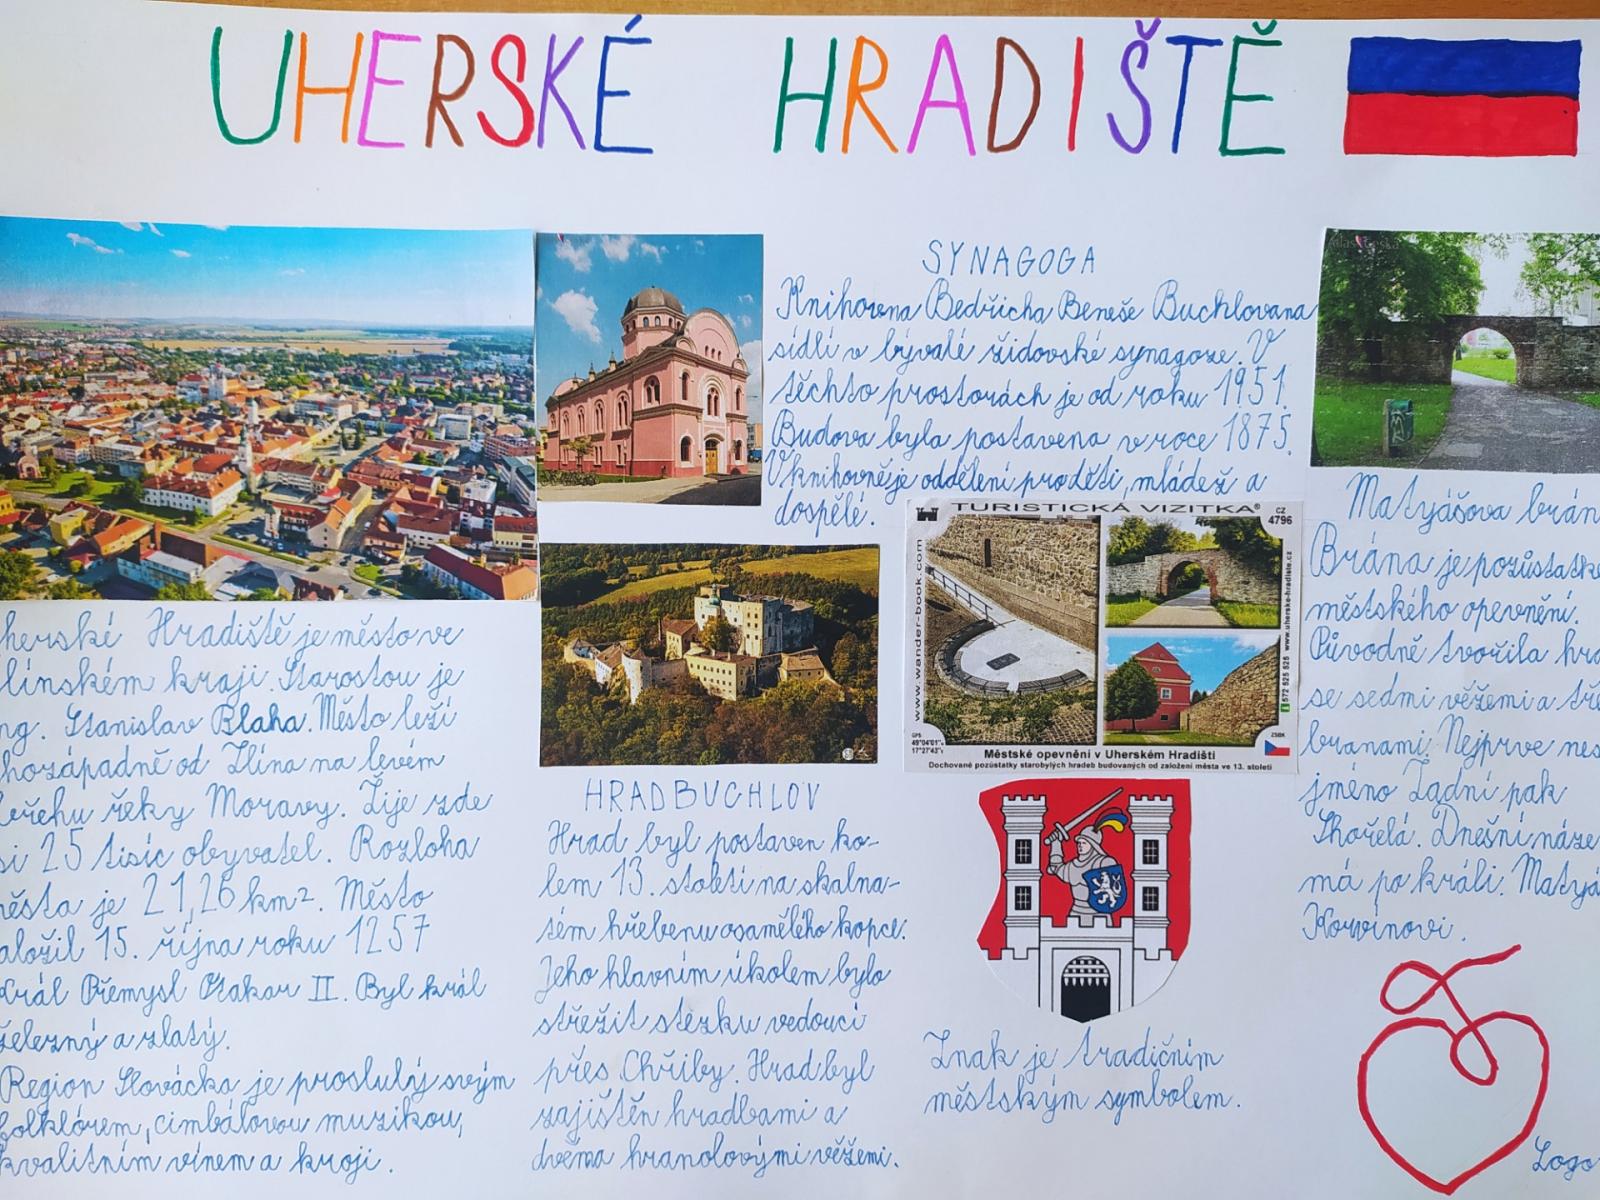 UHERSKÉ HRADIŠTĚ
herské Hradiště je město ve
línském kraji. Starostou je
ng. Stanislav Blaha. Město leží
hozápadně od Zlína na levém
břehu řeky Moravy. Žije zde
si 25 tisíc obyvatel. Rozloha
města je 21,26 km². Město
aložil 15. října roku 1257
král Přemysl Otakar II. Byl král
železný a zlatý.
Region Slovácka je proslulý svým
folklórem, cimbálovou muzikou,
kvalitním vínem a kroji.
SYNAGOGA
Knihovna Bedřicha Beneše Buchlovana
sídlí v bývalé židovské synagoze. V
těchto prostorách je od roku 1951.
Budova byla postavena v roce 1875.
V knihovně je oddělení pro děti, mládež a
dospělé.
HRAD BUCHLOV
Hrad byl postaven ko-
lem 13. století na skalna-
tém hřebenu osamělého kopce.
Jeho hlavním úkolem bylo
střežit stezku vedoucí
přes Chřiby. Hrad byl
zajištěn hradbami a
dvěma hranolovými věžemi.
TURISTICKÁ VIZITKA®
CZ
4796
www.wander-book.com
www.uherske-hradiste.cz
572 525 525
GPS
49°04'01"
17°27'43"
ZSBK
Městské opevnění v Uherském Hradišti
Dochované pozůstatky starobylých hradeb budovaných od založení města ve 13. století
Znak je tradičním
městským symbolem.
Matyášova brán
Brána je pozůstatke
městského opevnění.
Původně tvořila hra
se sedmi věžemi a tře
branami. Nejprve nes
jméno Zadní pak
Shořelá. Dnešní náze
má po králi Matyá
Korvínovi.
Logo